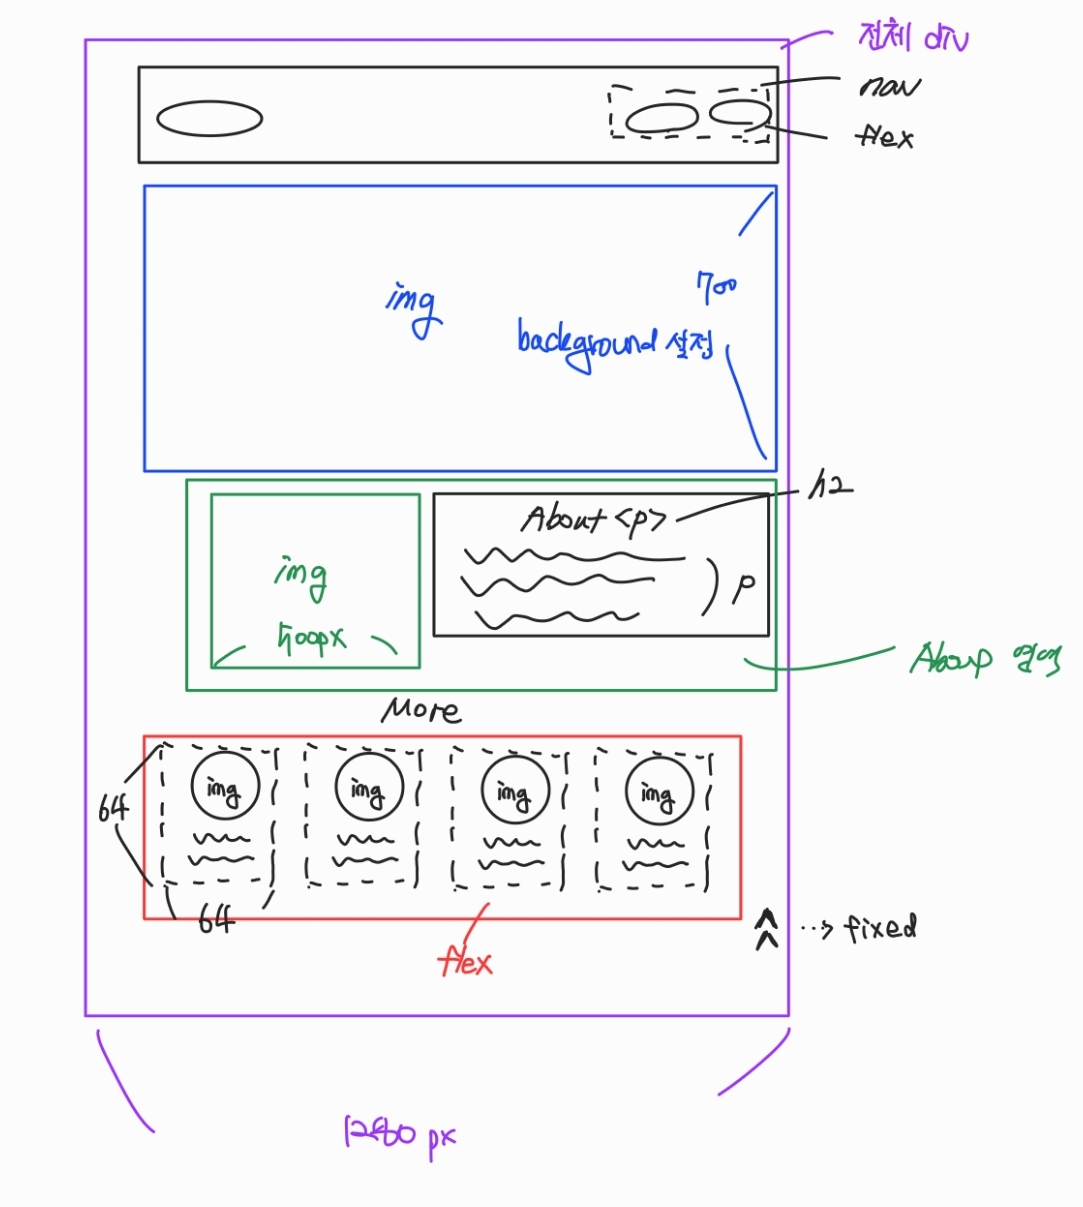 전체 div
nav
flex
img
700
background 설정
h2
About <p>
img
p
400px
Aboup 영역
More
img
img
img
img
64
64
fixed
flex
1280px